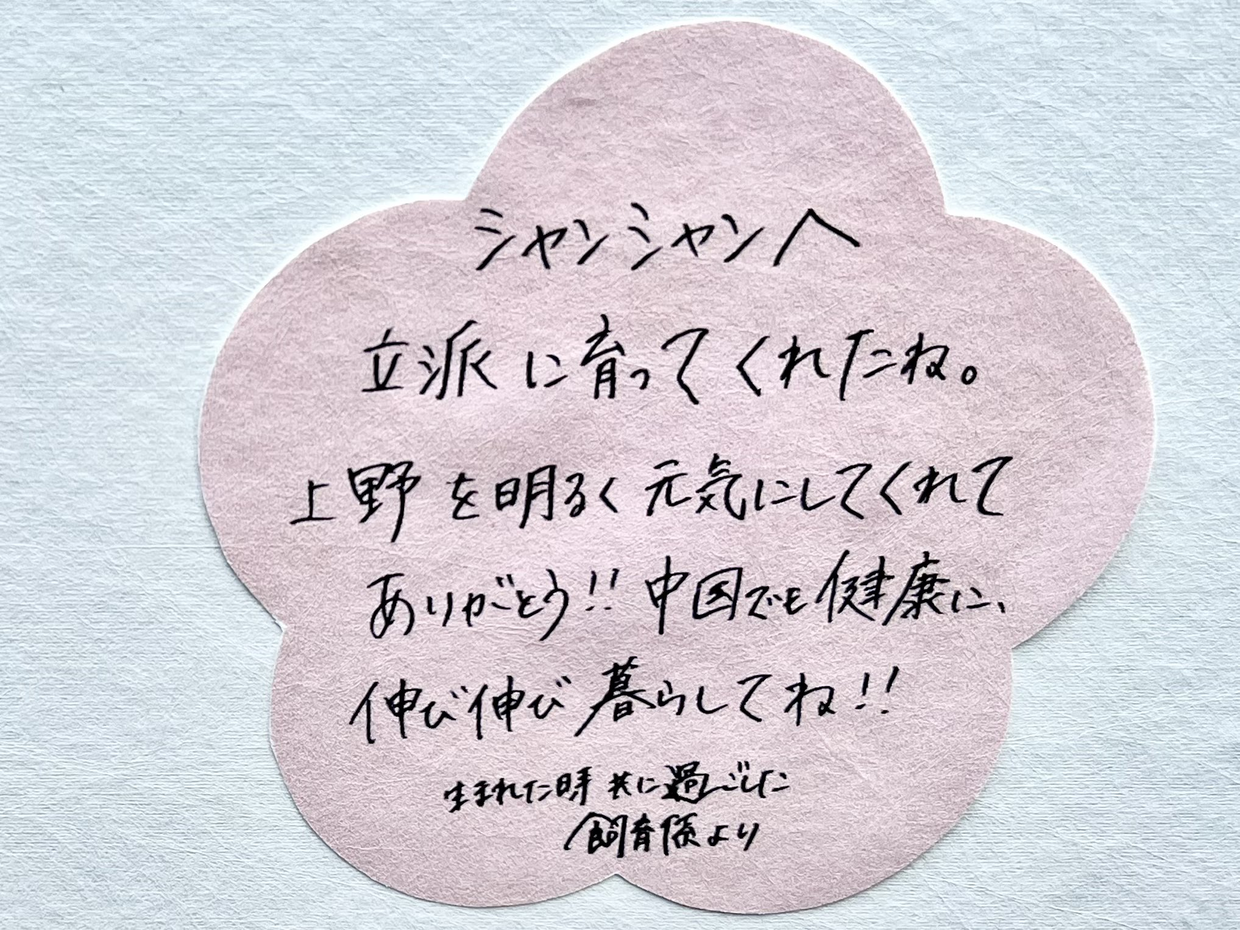 シャンシャンへ
立派に育ってくれたね。
上野を明るく元気にしてくれて
ありがとう!!中国でも健康に、
伸び伸び暮らしてね!!
生まれた時共に過ごした
飼育係より